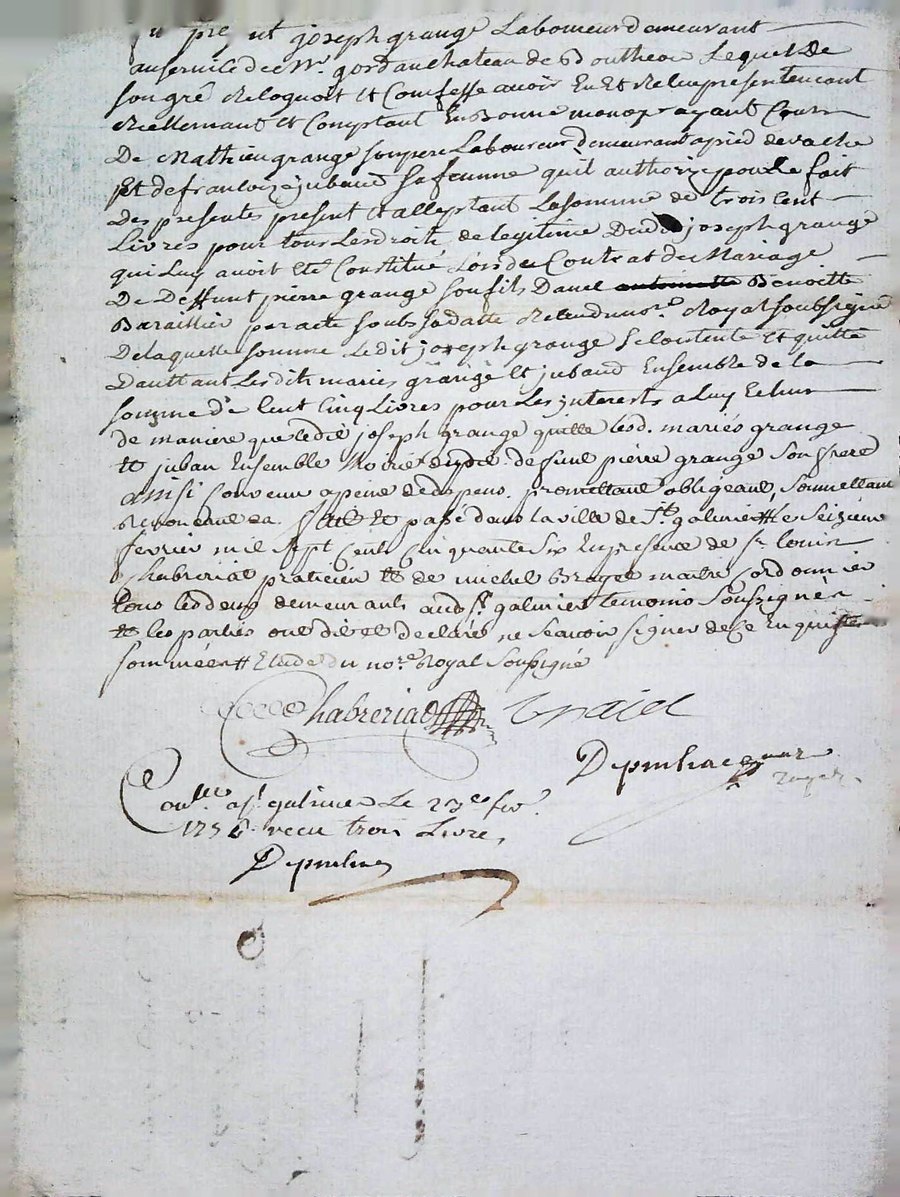 joseph grange Laboureur demeurant
au service de Mr. gord au chateau de Boutheon Lequel de
son gré Reloquoit et Confesse avoir Eu et Releu presentement
Reellemant et Comptant En Bonne monoye ayant Cours
De Mathieu grange son pere Laboureur demeurant a pied de vache
Et de franloize jubaud sa femme quil authorize pour le fait
Des presentes present et alleptant La somme de trois Cent
Livres pour tous Les droits de legitime Dud. joseph grange
qui Luy avoit Eté Constitué Lors du Contrat de Mariage
De Deffunt pierre grange son fils Davel Benoitte
Baraillier par acte soubs sa datte Releu du nore. Royal soubsigné
De laquelle somme Ledit joseph grange se Lontente et quitte
Dauttant Les dits mariés grange Et jubaud Ensemble de la
somme de Cent Cinq Livres pour Les jnterests a Luy Echus
de maniere que ledit joseph grange quitte lesd. mariés grange
et juban Ensemble de feue pierre grange son frere
ainsi Convenu a peine de depens. promettant obligeant, soumettant
Renonceant &a. fait et passé dans la ville de St. galmier le seizieme
fevrier mil sept Cent Cinquante six En presence de sr. louis
Chabreriat praticien et de michel Brayet maitre Cordonnier
tous les deux demeurants aud. St. galmier temoins soussignés
et les parties ont dit et declaré ne scavoir signer de Ce Enquis
sommées Etude du nore. Royal soussigné
Chabreriat
Depinhac
Conlle. a St. galmier Le 23e fevr.
1756 receu trois Livres
Depinhac